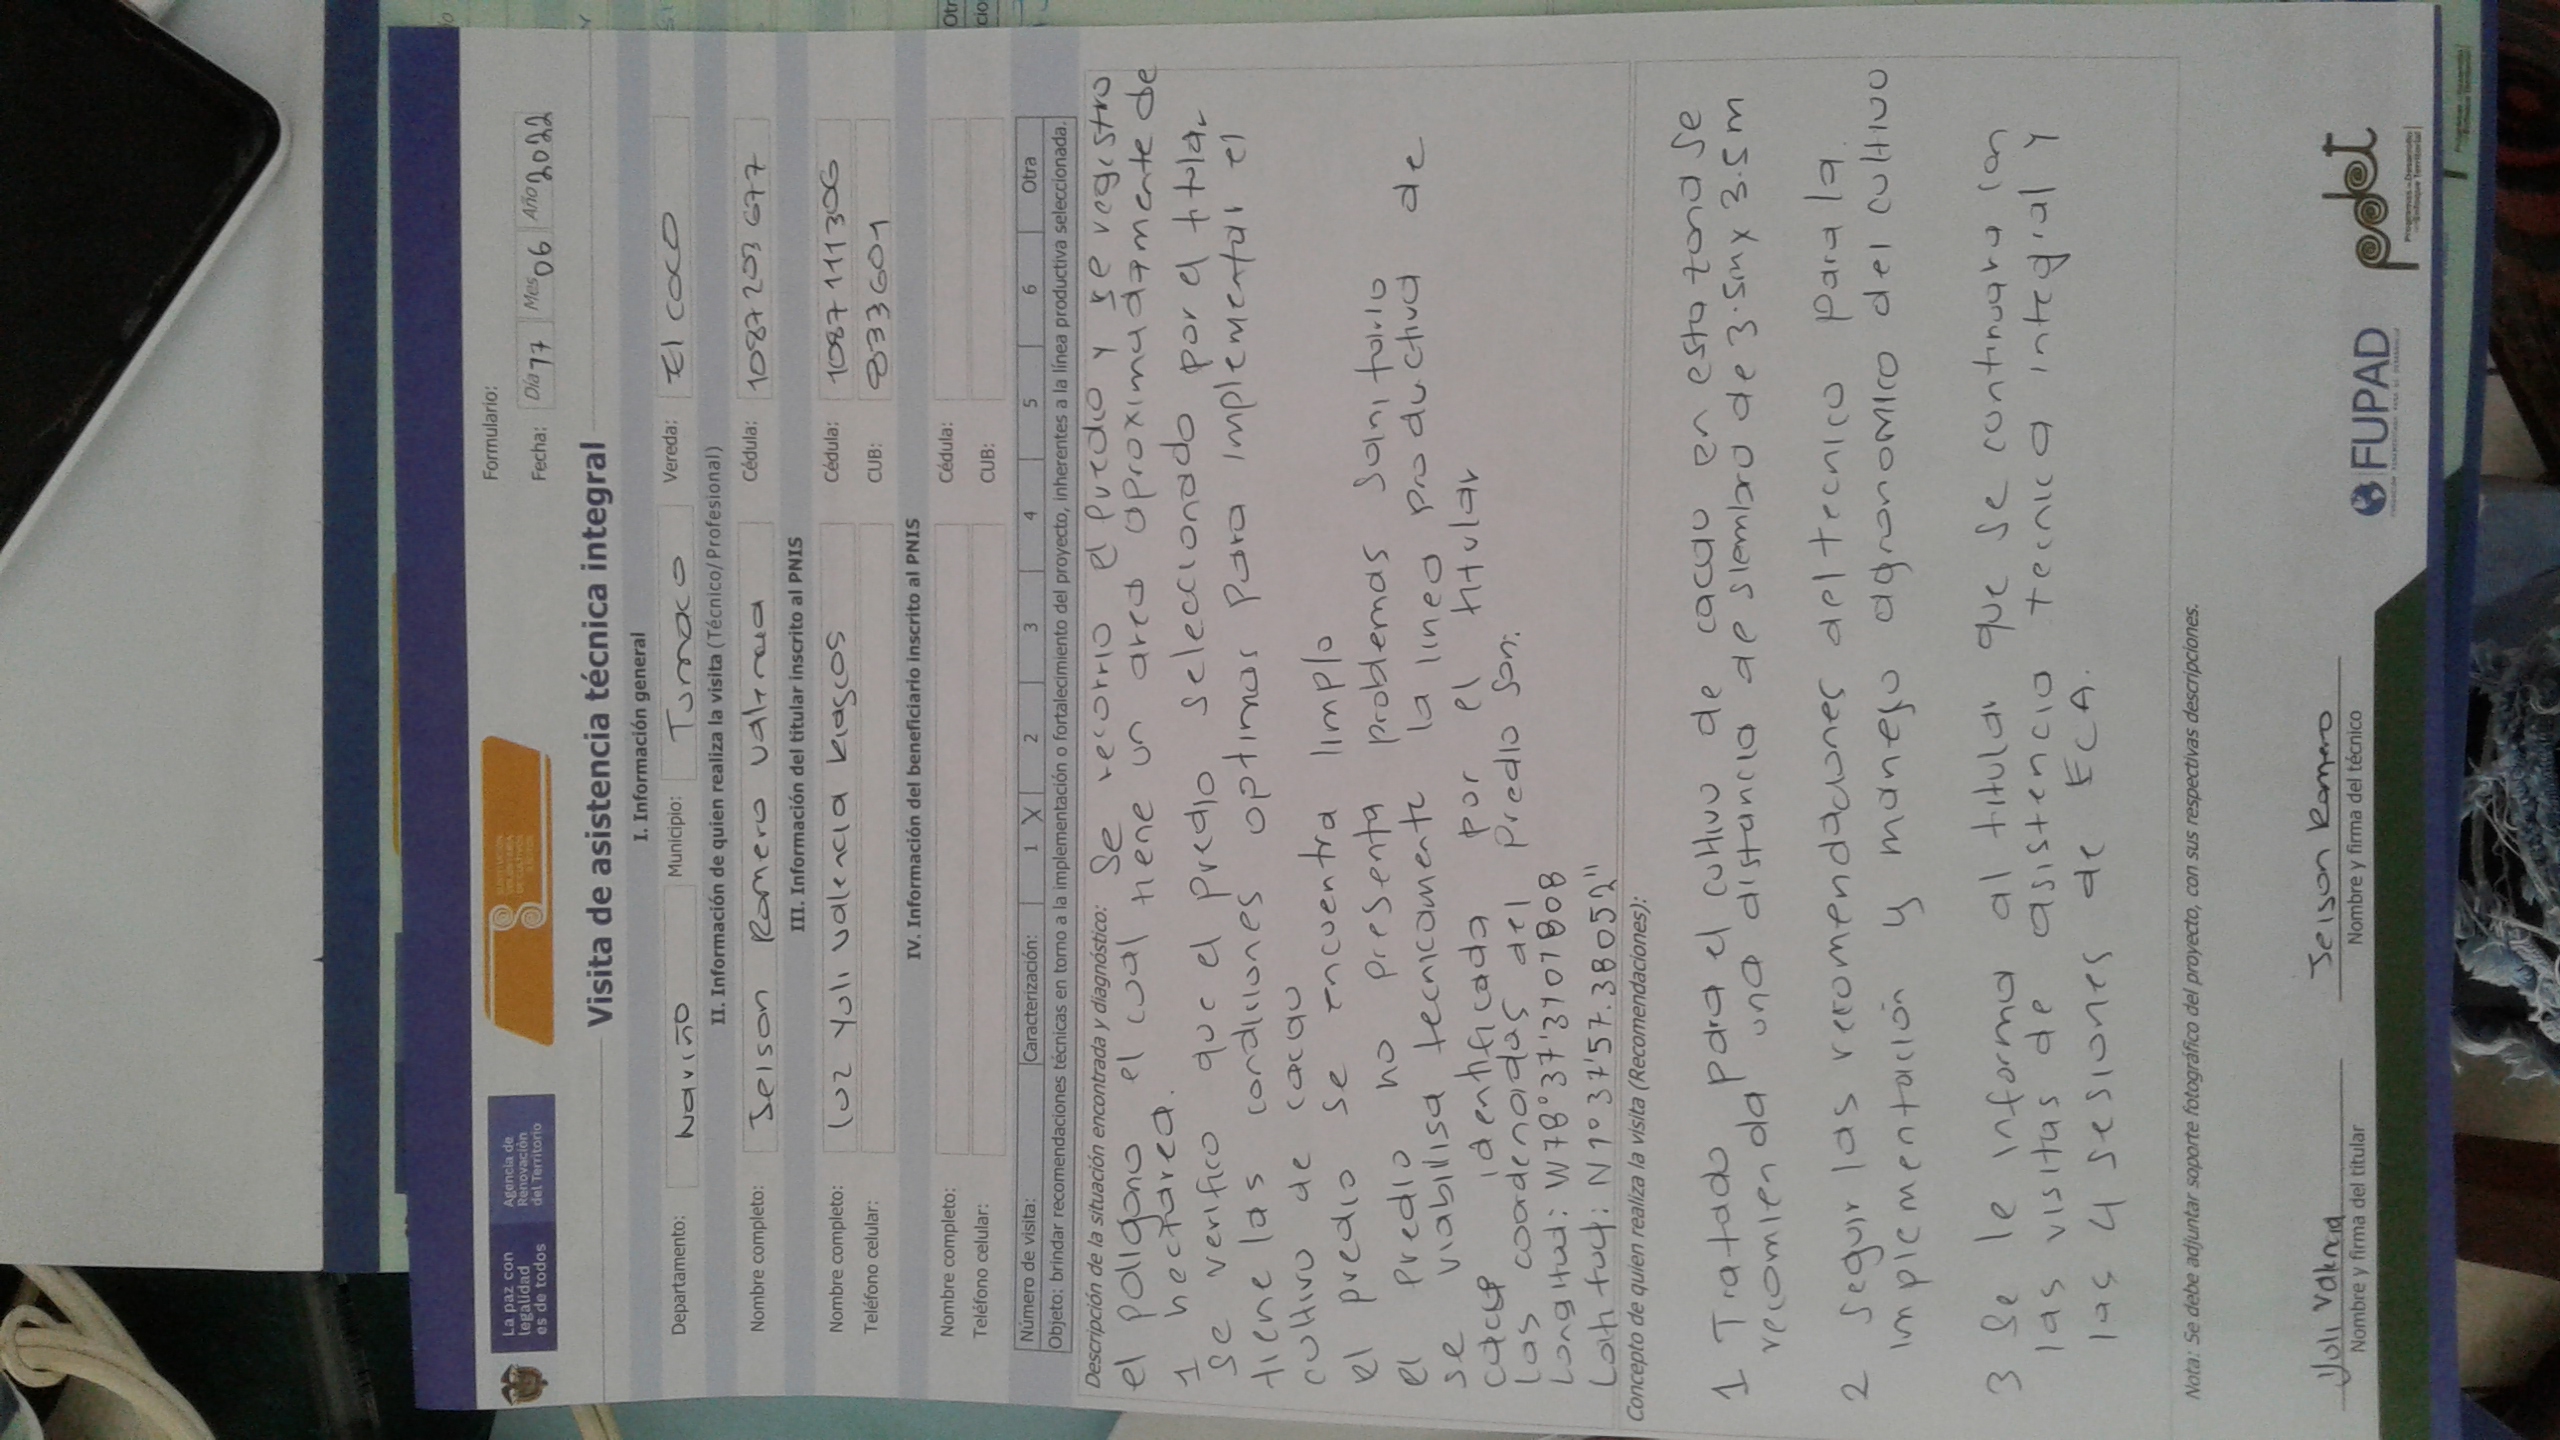 La paz con
legalidad
es de todos
Agencia de
Renovación
del Territorio
SUSTITUCIÓN
VOLUNTARIA
DE CULTIVOS
ILÍCITOS
Formulario:
Fecha: Día 17 Mes 06 Año 2022
Visita de asistencia técnica integral
I. Información general
Departamento: Nariño Municipio: Tumaco Vereda: El coco
II. Información de quien realiza la visita (Técnico/Profesional)
Nombre completo: Jeison Romero Valencia Cédula: 1087203677
III. Información del titular inscrito al PNIS
Nombre completo: Luz Yuli Valencia Riascos Cédula: 1087111306
Teléfono celular: CUB: 833601
IV. Información del beneficiario inscrito al PNIS
Nombre completo: Cédula:
Teléfono celular: CUB:
Número de visita: Caracterización: 1 X 2 3 4 5 6 Otra
Objeto: brindar recomendaciones técnicas en torno a la implementación o fortalecimiento del proyecto, inherentes a la línea productiva seleccionada.
Descripción de la situación encontrada y diagnóstico: Se recorrio el predio y se registro
el poligono el cual tiene un area aproximadamente de
1 hectarea.
se verifico que el predio seleccionado por el titular
tiene las condiciones optimas para implementar el
cultivo de cacao
el predio se encuentra limpio
el predio no presenta problemas sanitario
se viabilisa tecnicamente la linea productiva de
cacao identificada por el titular
Las coordenadas del predio son:
Longitud: W78°37'3101808
Latitud: N1°37'57.38052"
Concepto de quien realiza la visita (Recomendaciones):
1 Tratado para el cultivo de cacao en esta zona se
recomienda una distancia de siembra de 3.5m x 3.5m
2 seguir las recomendaciones del tecnico para la
implementación y manejo agronomico del cultivo
3 Se le informa al titular que se continuara con
las visitas de asistencia tecnica integral y
las 4 sesiones de ECA.
Nota: Se debe adjuntar soporte fotográfico del proyecto, con sus respectivas descripciones.
Yuli Valencia
Nombre y firma del titular
Jeison Romero
Nombre y firma del técnico
FUPAD
pdet
Programas de Desarrollo
con Enfoque Territorial